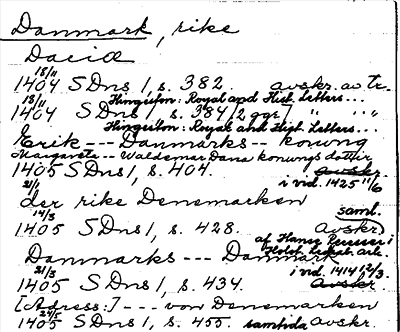 Danmark, rike
Dacia
18/11
1404 SDns 1, s. 382 avskr. av tr.
Hingeston: Royal and Hist. Letters...
18/11
1404 SDns 1, s. 384, 2 ggr. " " "
Hingeston: Royal and Hist. Letters...
Erik --- Danmarks -- konung
Margareta -- Waldemar Dana konungs dotter
1405 SDns 1, s. 404. avskr.
i vid. 1425 11/6
21/1
der rike Denemarken
14/3 saml.
1405 SDns 1, s. 428. avskr.
af Hansg Recesser i
Danmarks --- Danmark
i vid. 1414 12/3.
21/3
1405 SDns 1, s. 434. avskr.
[Adress:] --- von Denemarken
24/5
1405 SDns 1, s. 455. samtida avskr.